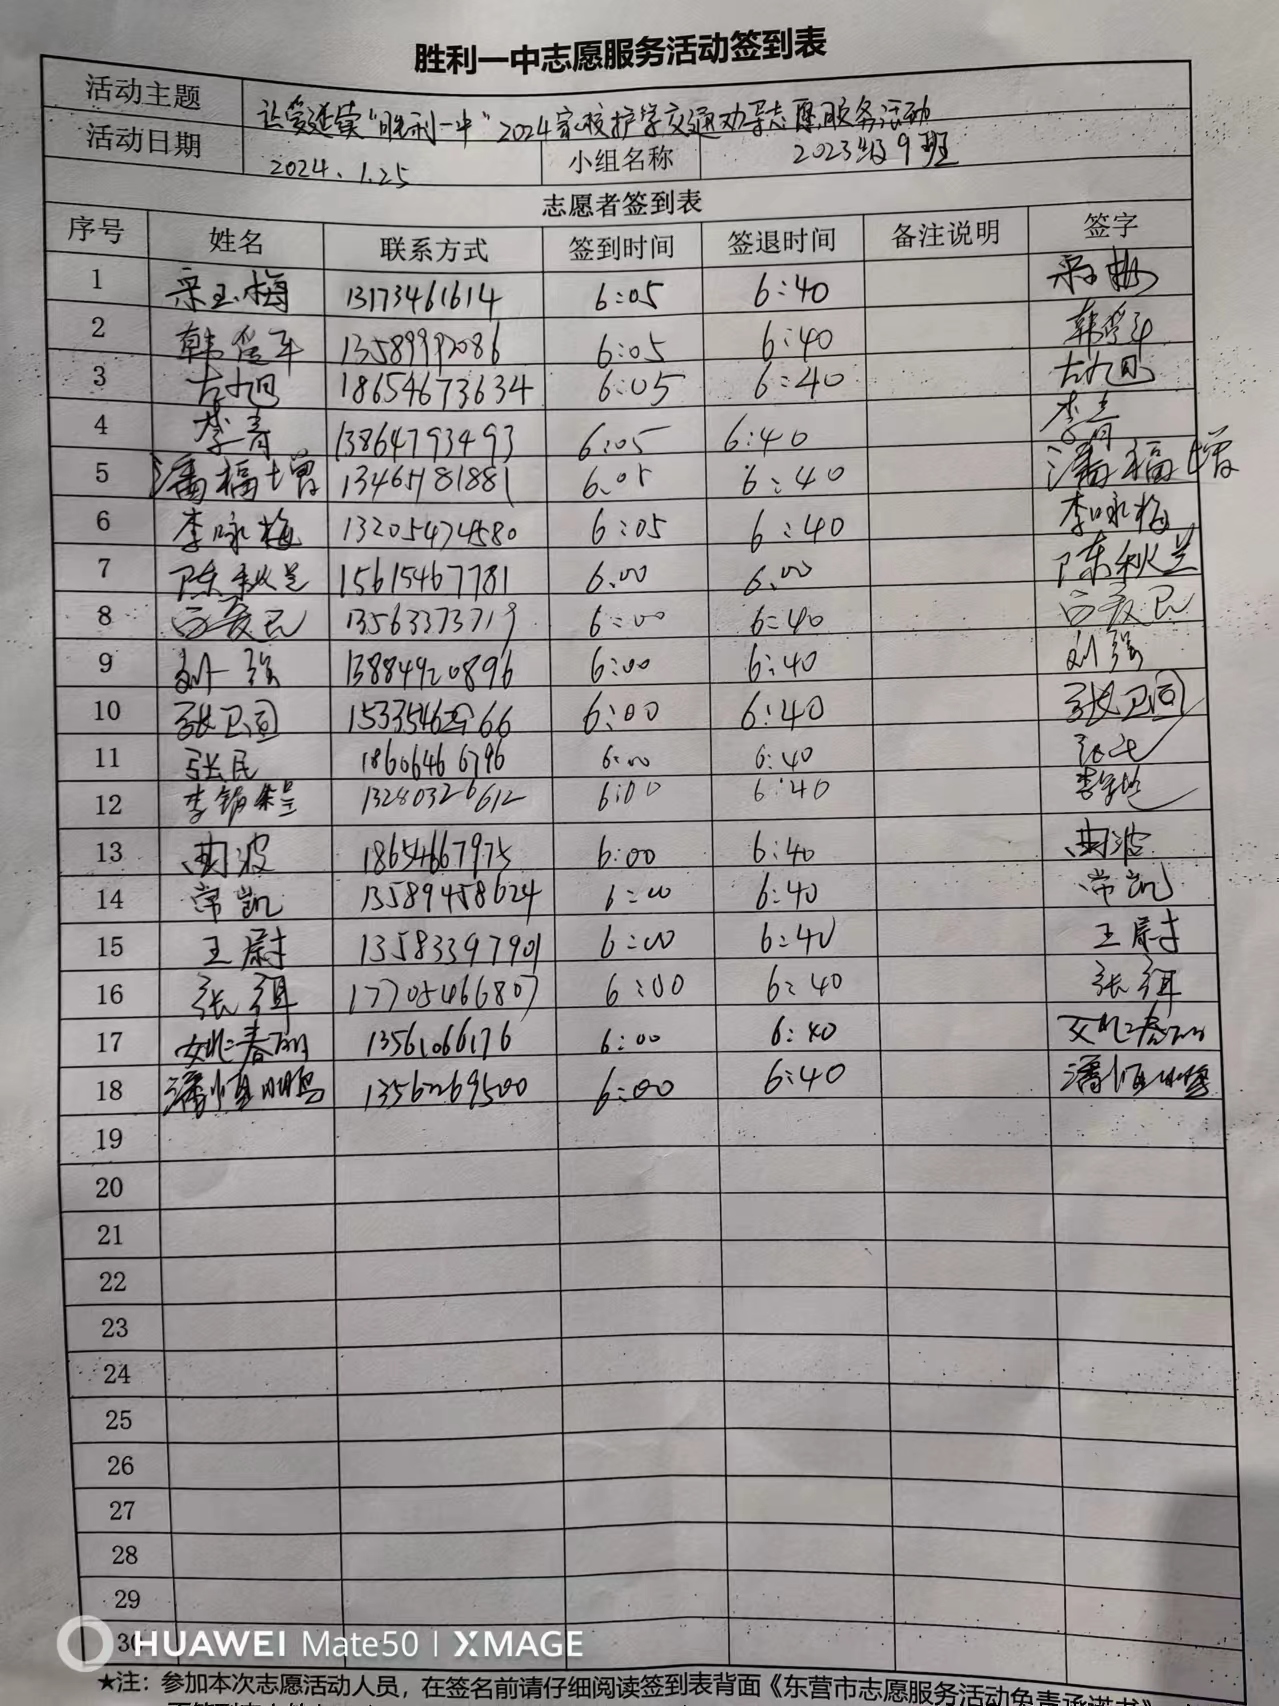 胜利一中志愿服务活动签到表
活动主题 让爱延续“胜利一中”2024家校护学交通劝导志愿服务活动
活动日期 2024.1.25 小组名称 2023级9班
志愿者签到表
序号 姓名 联系方式 签到时间 签退时间 备注说明 签字
1 玉梅 13173461614 6:05 6:40
2 韩 13589992086 6:05 6:40 韩
3 左旭 18654673634 6:05 6:40 左旭
4 李青 13864793493 6:05 6:40 李青
5 潘福增 13465181881 6:05 6:40 潘福增
6 李咏梅 13205474580 6:05 6:40 李咏梅
7 陈秋兰 15615467781 6:00 6:00 陈秋兰
8 13563373719 6:00 6:40
9 刘强 13884920896 6:00 6:40 刘强
10 张卫国 6:00 6:40 张卫国
11 张民 18606466796 6:00 6:40 张民
12 李 13280326612 6:00 6:40 李
13 曲波 18654667975 6:00 6:40 曲波
14 常凯 13589458624 6:00 6:40 常凯
15 王尉 13583397901 6:00 6:40 王尉
16 张 17705466807 6:00 6:40 张
17 姚春丽 13561066176 6:00 6:40 姚春丽
18 潘恒鹏 13562269500 6:00 6:40 潘恒鹏
19
20
21
22
23
24
25
26
27
28
29
30
HUAWEI Mate50 | XMAGE
★注：参加本次志愿活动人员，在签名前请仔细阅读签到表背面《东营市志愿服务活动免责承诺书》